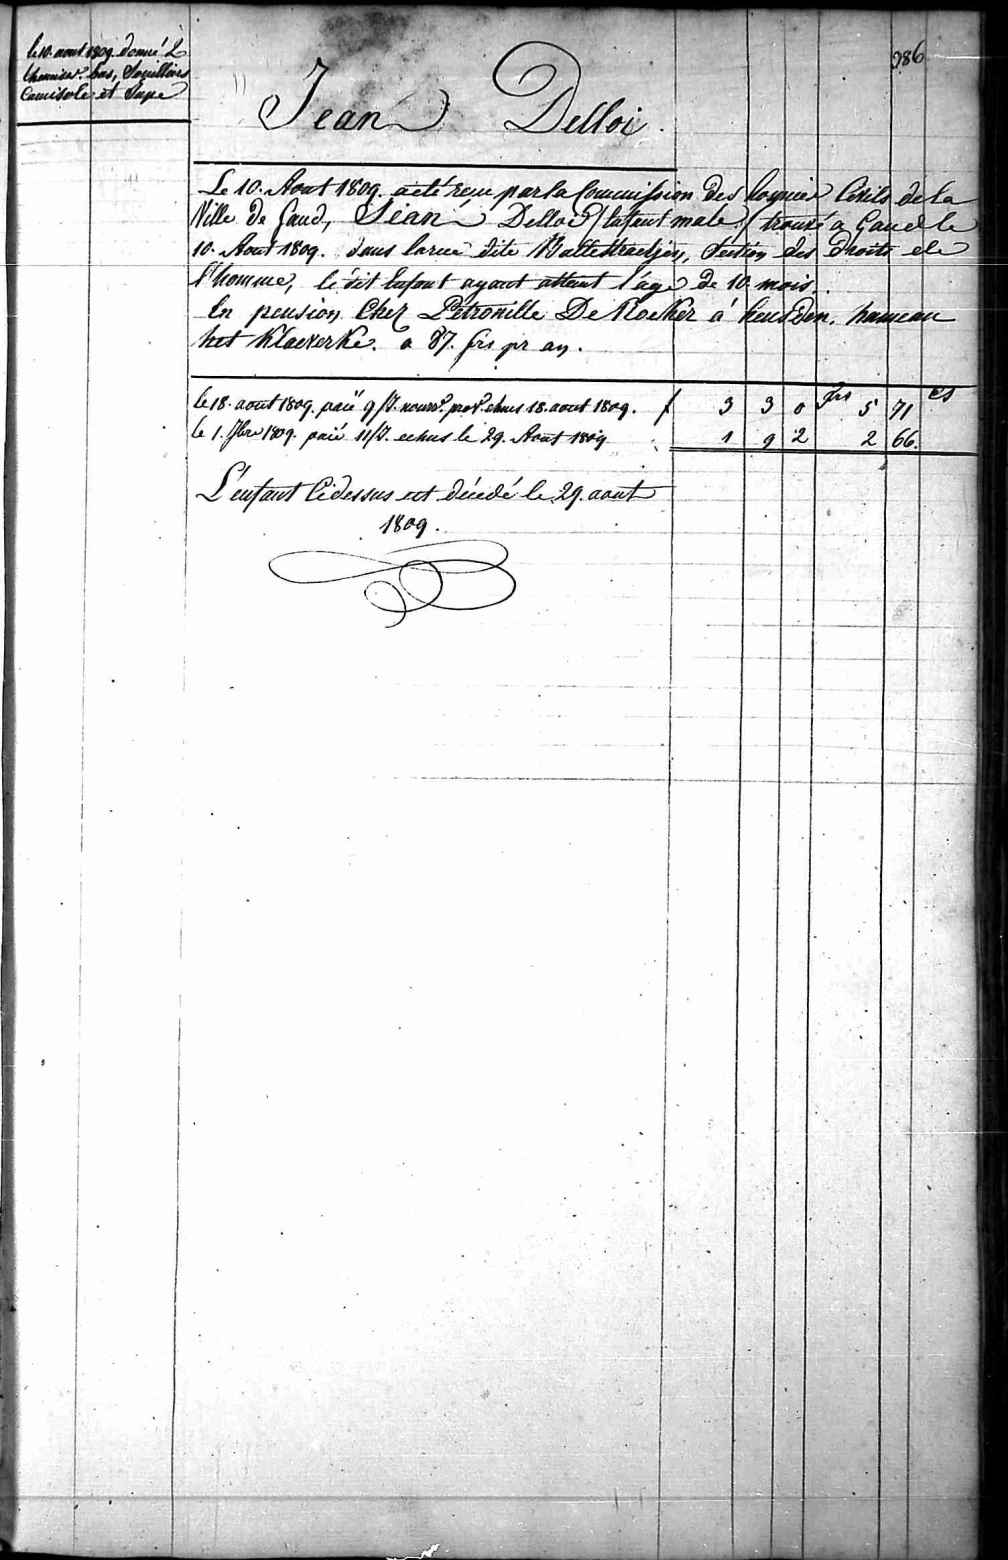 le 10. aout 1809. donné 2
Chemises. bas, Souilliers
Camisole et Jupe
986
Jean Delloi.
Le 10. Aout 1809. a été reçu par la Commission des hospices Civils de la
Ville de Gand, Jean Delloi /Enfant male/ trouvé à Gand le
10. Aout 1809. dans la rue dite section des Droits de
l'homme, le dit Enfant ayant atteint l'âge de 10. mois.
En pension Chez Petronille De Rocker á heusden. hameau
het Klaverke. a 37. frs pr an.
frs cs
le 18. aout 1809. paié 9 echus 18. aout 1809. f 3 3 0 5 71
le 1. 7bre 1809. paié 11 echus le 29. Aout 1809 1 9 2 2 66.
L'enfant Cidessus est décédé le 29. aout
1809.